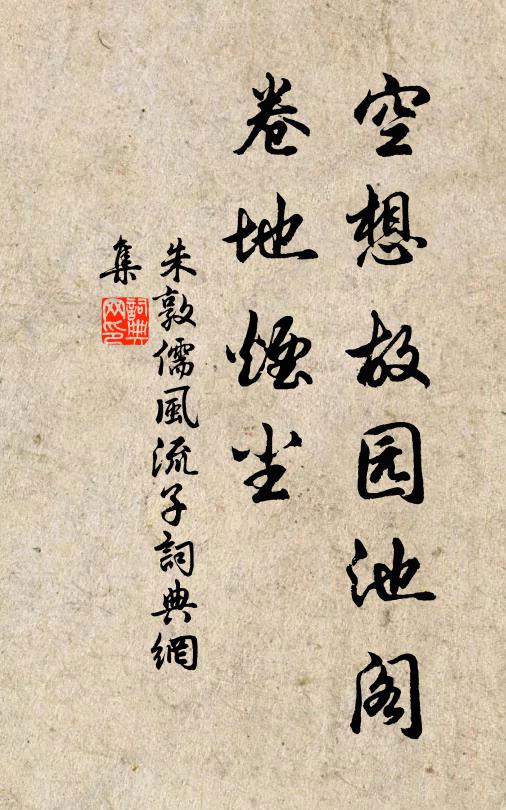 空想故园池阁
卷地煙尘
朱敦儒風流子詞典網
集
詞典
网印